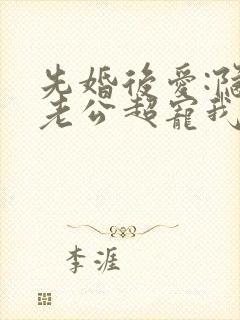 先婚後愛:
老公超寵我
李涯